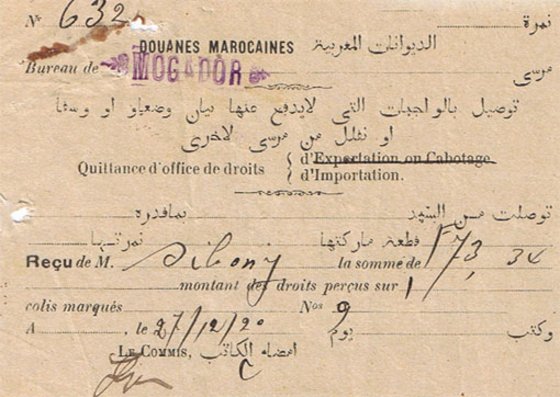 Nº 632 نمرة
DOUANES MAROCAINES الديوانات المغربية
Bureau de MOGADOR مرسى
توصيل بالواجبات التى لايدفع عنها بيان وضعياو او وسفا
او نفلل من مرسى لاخرى
Quittance d'office de droits { d'Exportation ou Cabotage
d'Importation.
توصلت من السيد بمافدره
فطعة ماركتها نمرتها
Reçu de M. Sibony la somme de 173,34
montant des droits perçus sur 1
colis marqués Nos 9
A , le 27/12/20 يوم وكتب
LE COMMIS, امضاء الكاتب